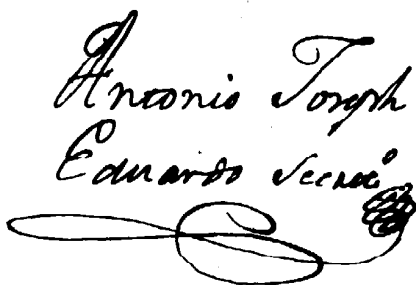 Antonio Joseph
Eduardo Secretº